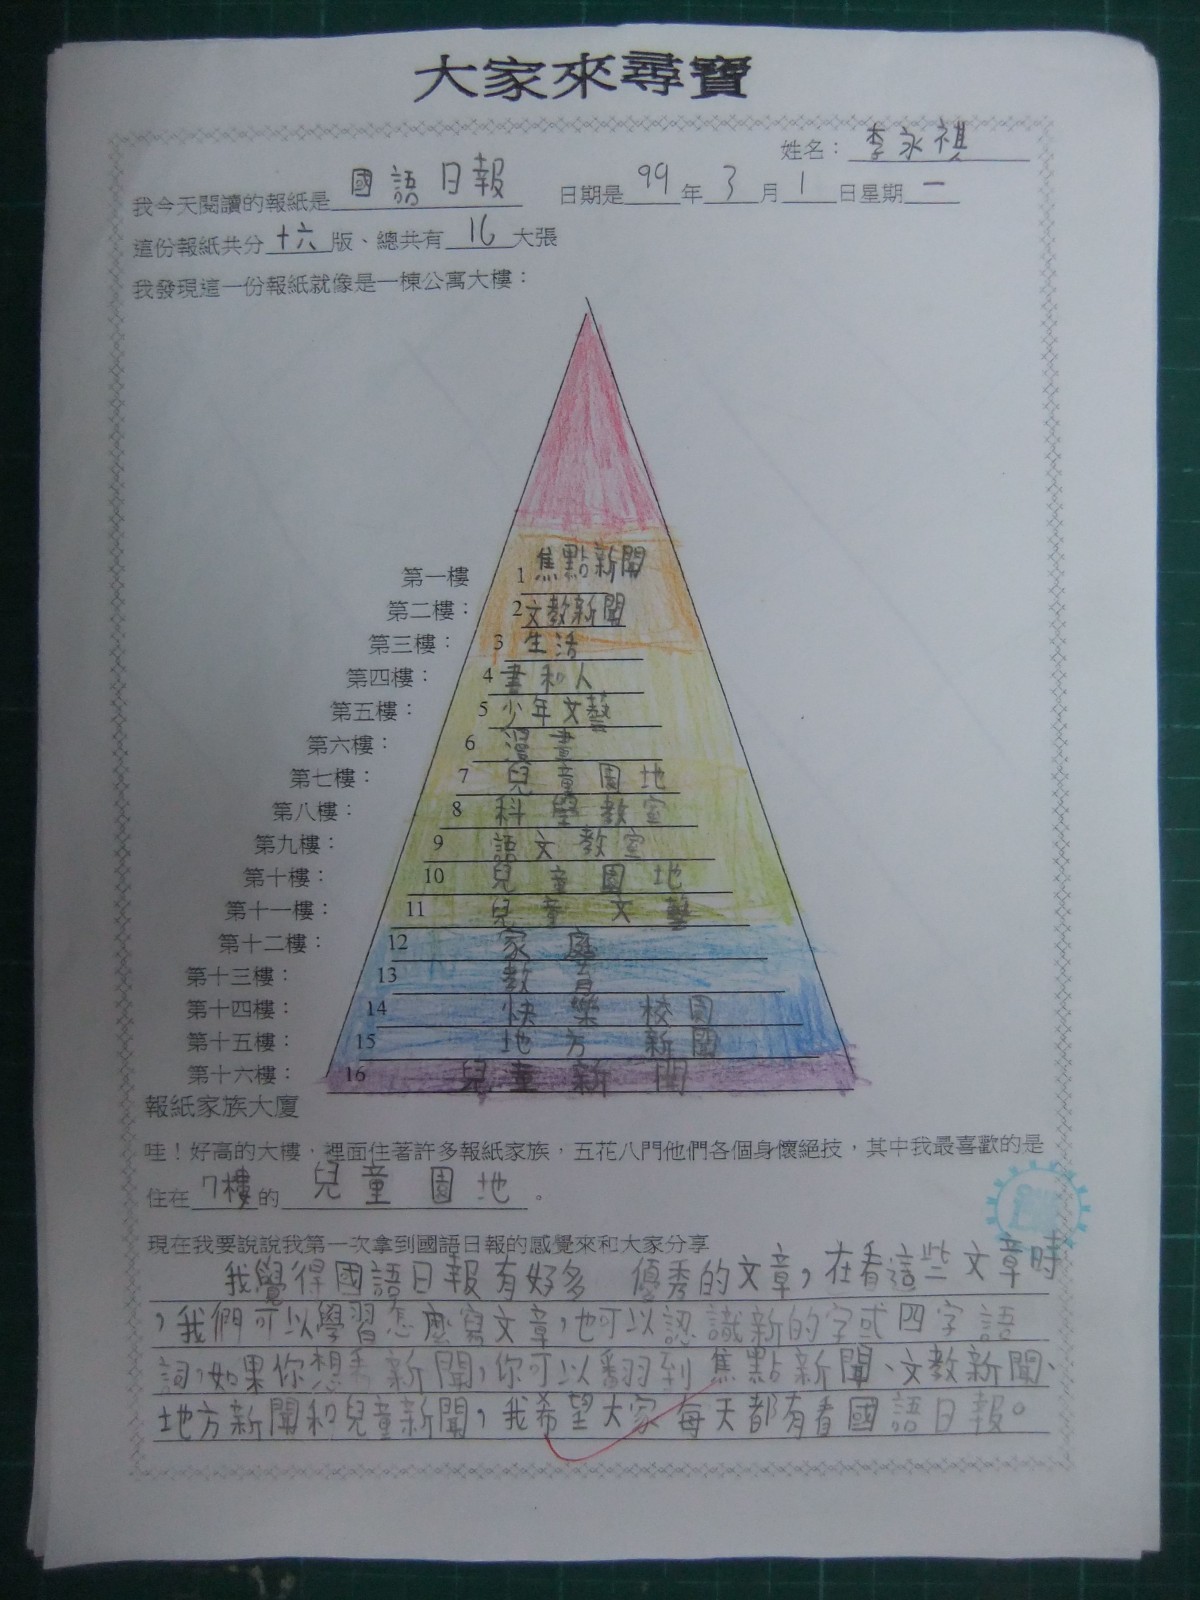 大家來尋寶
姓名：李永祺
我今天閱讀的報紙是國語日報 日期是99年3月1日星期一
這份報紙共分十六版、總共有16大張
我發現這一份報紙就像是一棟公寓大樓：
第一樓 1 焦點新聞
第二樓： 2 文教新聞
第三樓： 3 生活
第四樓： 4 書和人
第五樓： 5 少年文藝
第六樓： 6 漫畫
第七樓： 7 兒童園地
第八樓： 8 科學教室
第九樓： 9 語文教室
第十樓： 10 兒童園地
第十一樓： 11 兒童文藝
第十二樓： 12 家庭
第十三樓： 13 教育
第十四樓： 14 快樂校園
第十五樓： 15 地方新聞
第十六樓： 16 兒童新聞
報紙家族大廈
哇！好高的大樓，裡面住著許多報紙家族，五花八門他們各個身懷絕技，其中我最喜歡的是
住在7樓的兒童園地。
現在我要說說我第一次拿到國語日報的感覺來和大家分享
我覺得國語日報有好多 優秀的文章，在看這些文章時
，我們可以學習怎麼寫文章，也可以認識新的字或四字語
詞，如果你想看新聞，你可以翻到焦點新聞、文教新聞、
地方新聞和兒童新聞，我希望大家每天都有看國語日報。